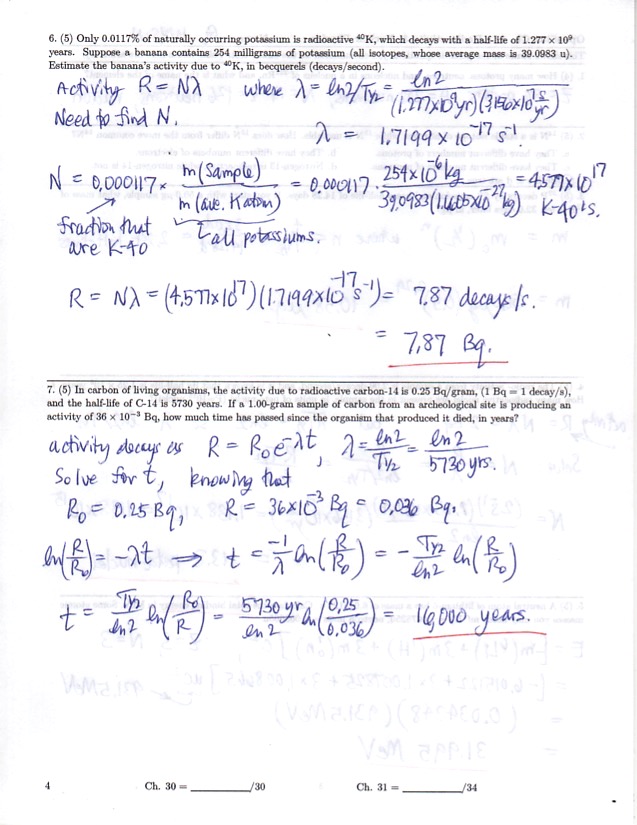 6. (5) Only 0.0117% of naturally occurring potassium is radioactive ⁴⁰K, which decays with a half-life of 1.277 × 10⁹
years. Suppose a banana contains 254 milligrams of potassium (all isotopes, whose average mass is 39.0983 u).
Estimate the banana's activity due to ⁴⁰K, in becquerels (decays/second).
Activity R = Nλ where λ = ln2/T½ = ln2 / (1.277×10⁹yr)(3.156×10⁷ s/yr)
Need to find N.
λ = 1.7199 × 10⁻¹⁷ s⁻¹.
N = 0.000117 × m(Sample) / m(ave. K atom) = 0.000117 · 254×10⁻⁶ kg / 39.0983(1.6605×10⁻²⁷ kg) = 4.577×10¹⁷ K-40's.
fraction that
are K-40
all potassiums.
R = Nλ = (4.577×10¹⁷)(1.7199×10⁻¹⁷ s⁻¹) = 7.87 decays/s.
= 7.87 Bq.
7. (5) In carbon of living organisms, the activity due to radioactive carbon-14 is 0.25 Bq/gram, (1 Bq = 1 decay/s),
and the half-life of C-14 is 5730 years. If a 1.00-gram sample of carbon from an archeological site is producing an
activity of 36 × 10⁻³ Bq, how much time has passed since the organism that produced it died, in years?
activity decays as R = R₀e⁻λt, λ = ln2/T½ = ln2 / 5730 yrs.
Solve for t, knowing that
R₀ = 0.25 Bq, R = 36×10⁻³ Bq = 0.036 Bq.
ln(R/R₀) = -λt ⟹ t = -1/λ ln(R/R₀) = - T½/ln2 ln(R/R₀)
t = T½/ln2 ln(R₀/R) = 5730 yr/ln2 ln(0.25/0.036) = 16,000 years.
4 Ch. 30 = ________/30 Ch. 31 = ________/34